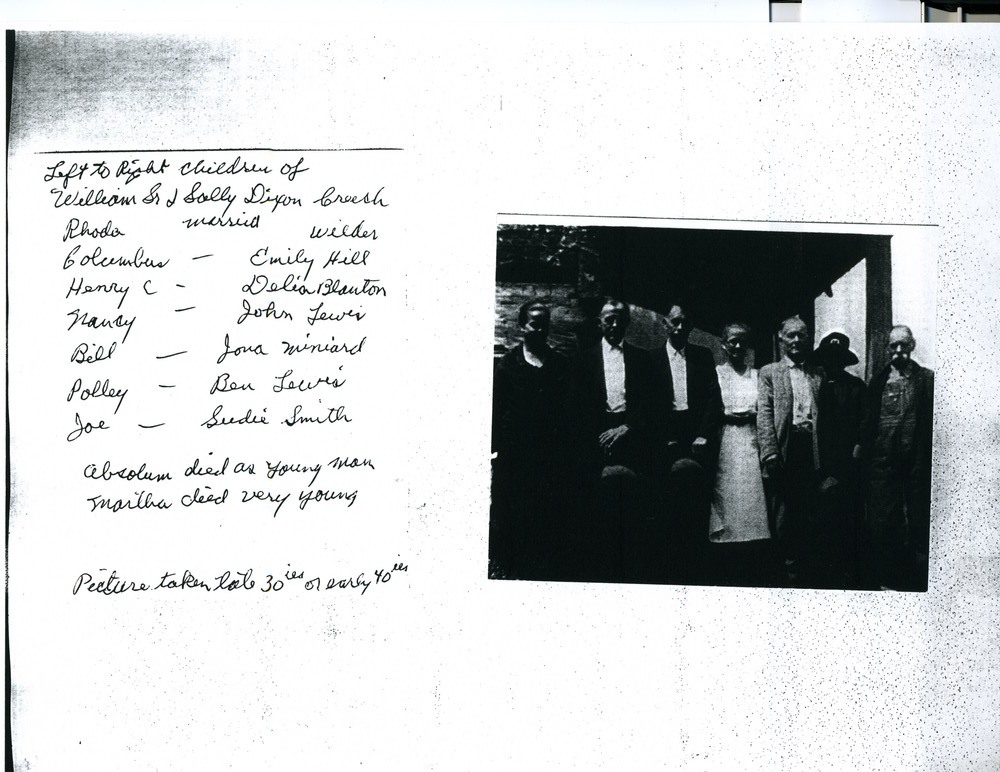 Left to Right children of
William Sr & Sally Dixon Creech
Rhoda married Wilder
Columbus — Emily Hill
Henry C - Delia Blanton
Nancy — John Lewis
Bill — Iona Miniard
Polley — Ben Lewis
Joe — Sudie Smith
Absolum died as young man
Martha died very young
Picture taken late 30ies or early 40ies